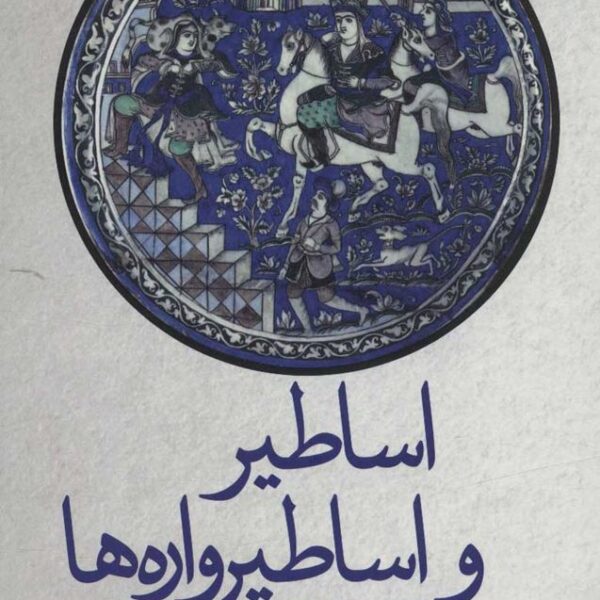 اساطیر
و اساطیرواره‌ها